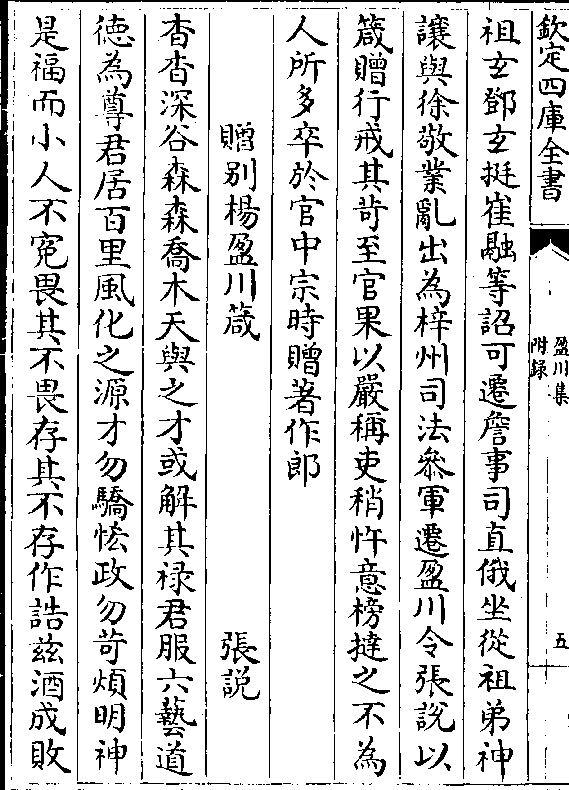 欽定四庫全書
盈川集
附録
五
祖玄鄧玄挺崔融等詔可遷詹事司直俄坐從祖弟神
讓與徐敬業亂出為梓州司法叅軍遷盈川令張說以
箴贈行戒其苛至官果以嚴稱吏稍忤意榜撻之不為
人所多卒於官中宗時贈著作郎
贈别楊盈川箴　張說
杳杳深谷森森喬木天與之才或解其禄君服六藝道
德為尊君居百里風化之源才勿驕恡政勿苛煩明神
是福而小人不寃畏其不畏存其不存作誥兹酒成敗